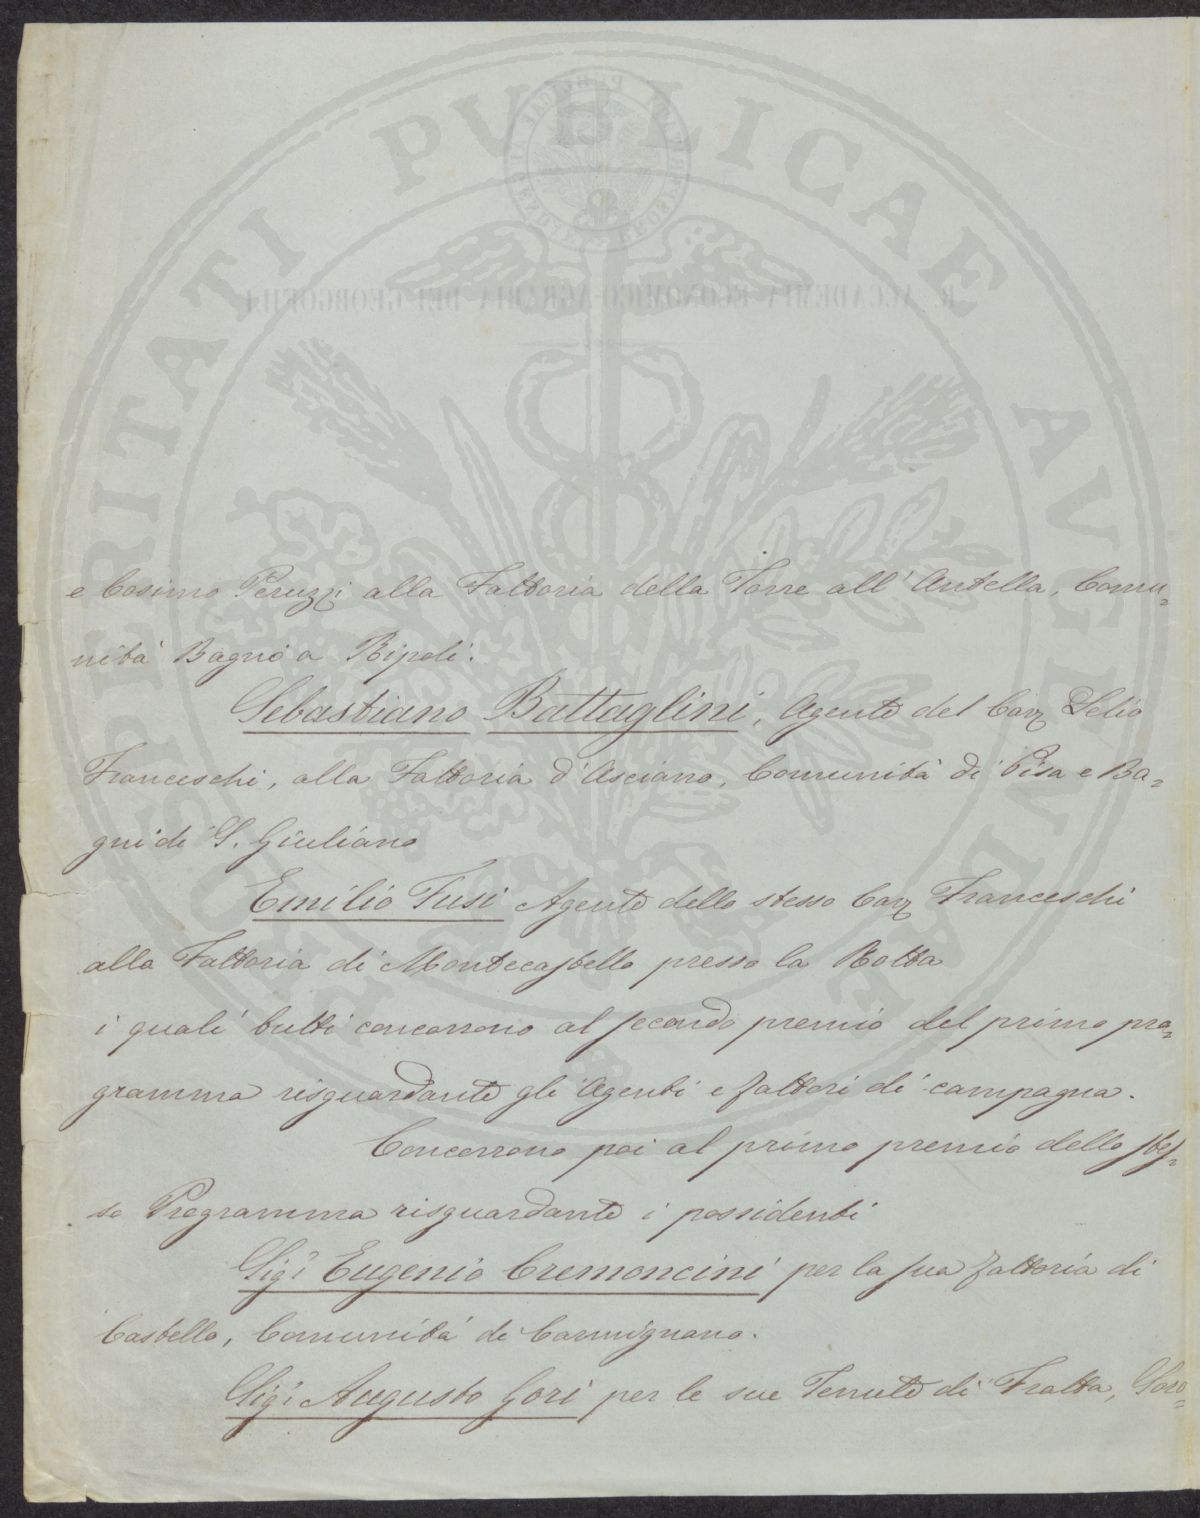 PROSPERITATI PVBLICAE AVGENDAE
R. ACCADEMIA ECONOMICO-AGRARIA DEI GEORGOFILI
e Cosimo Peruzzi alla Fattoria della Torre all'Antella, Comu=
nità Bagno a Ripoli.
Sebastiano Battaglini, Agente del Cav Lelio
Franceschi, alla Fattoria d'Asciano, Comunità di Pisa e Ba=
gni di S. Giuliano
Emilio Fusi Agente dello stesso Cav Franceschi
alla Fattoria di Montecastello presso la Rotta
i quali tutti concorrono al secondo premio del primo pro=
gramma risguardante gli Agenti e fattori di campagna.
Concorrono poi al primo premio dello stes=
so Programma risguardante i possidenti
Sigr Eugenio Cremoncini per la sua fattoria di
Castello, Comunità di Carmignano.
Sigr Augusto Gori per le sue Tenute di Fratta,